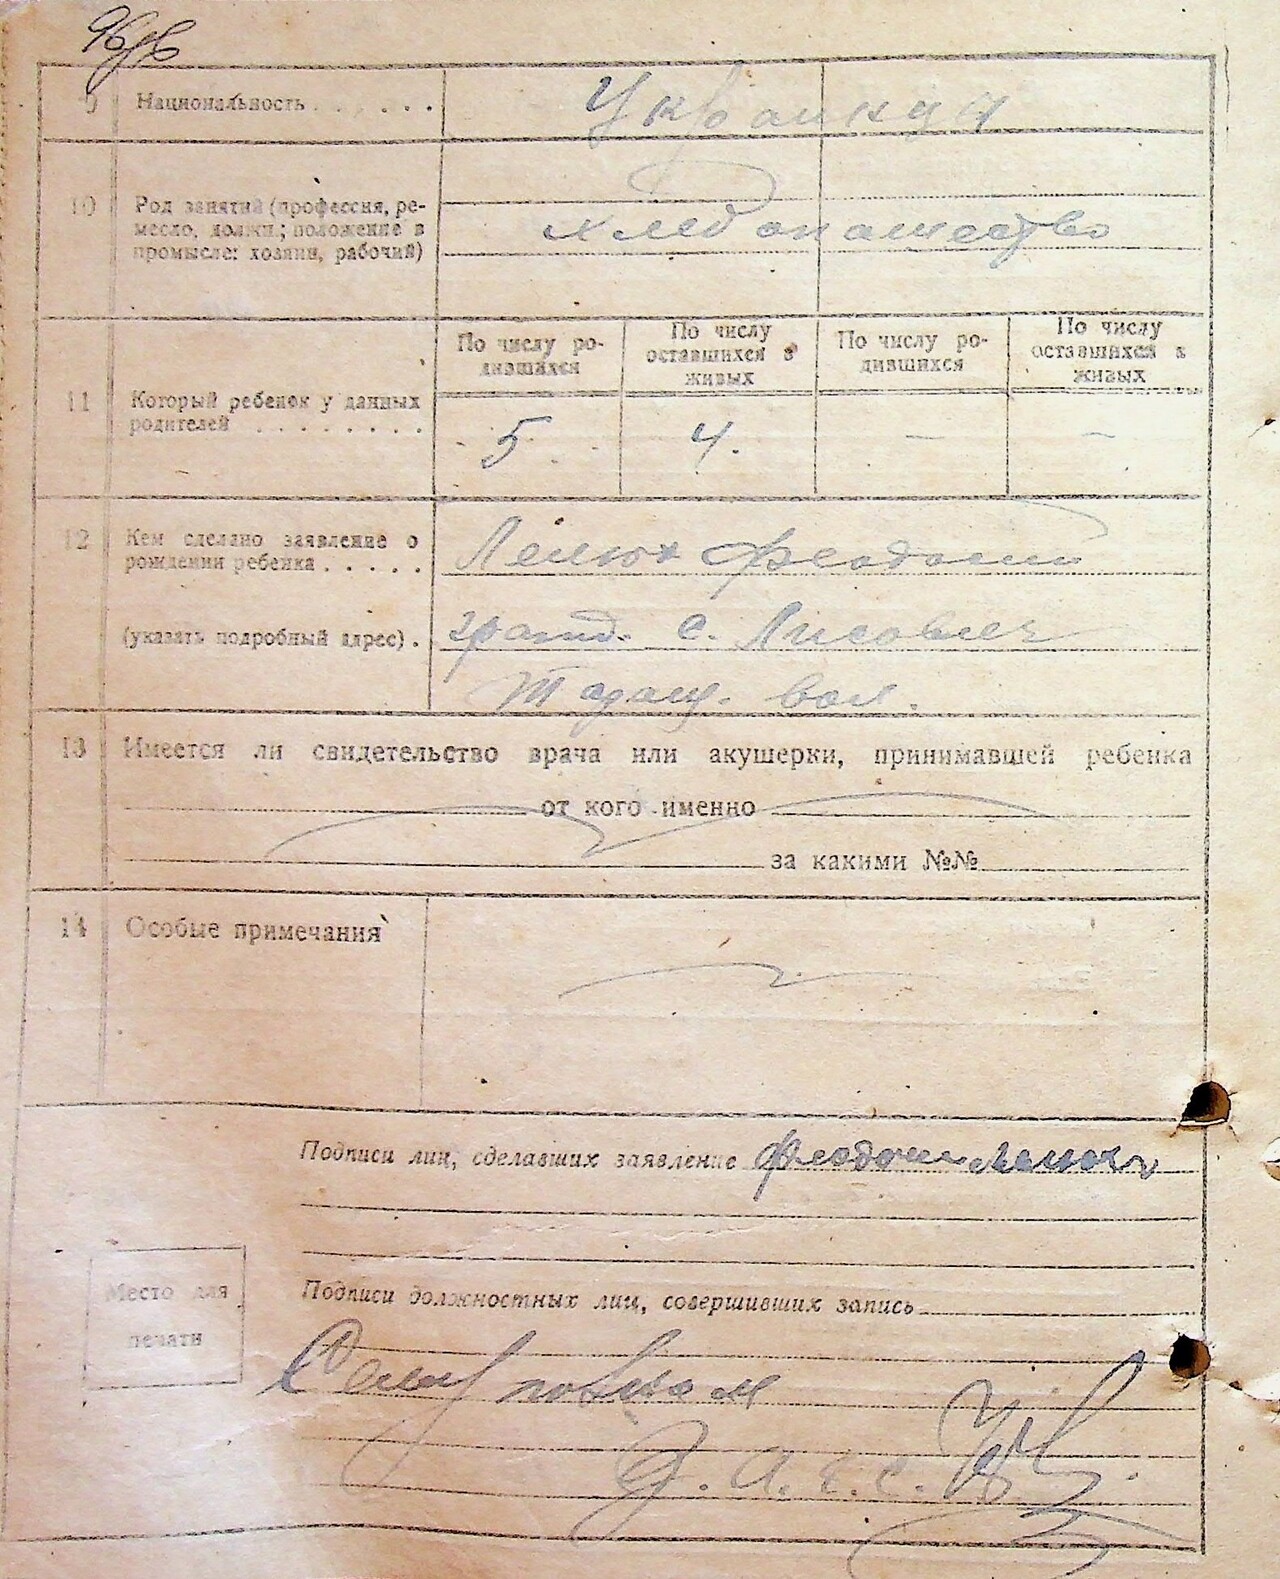 9 Национальность . . . . . . Украинцы
10 Род занятий (профессия, ре-
месло, должн.; положение в
промысле: хозяин, рабочий)
хлебопашество
По числу ро-
дившихся
По числу
оставшихся в
живых
По числу ро-
дившихся
По числу
оставшихся в
живых
11 Который ребенок у данных
родителей . . . . . . . .
5. 4. — —
12 Кем сделано заявление о
рождении ребенка . . . . .
Феодосий
(указать подробный адрес) .
гражд. с. Лисович
Таращ. вол.
13 Имеется ли свидетельство врача или акушерки, принимавшей ребенка
от кого именно
за какими №№
14 Особые примечания
Подписи лиц, сделавших заявление Феодосий
Подписи должностных лиц, совершивших запись
Место для
печати